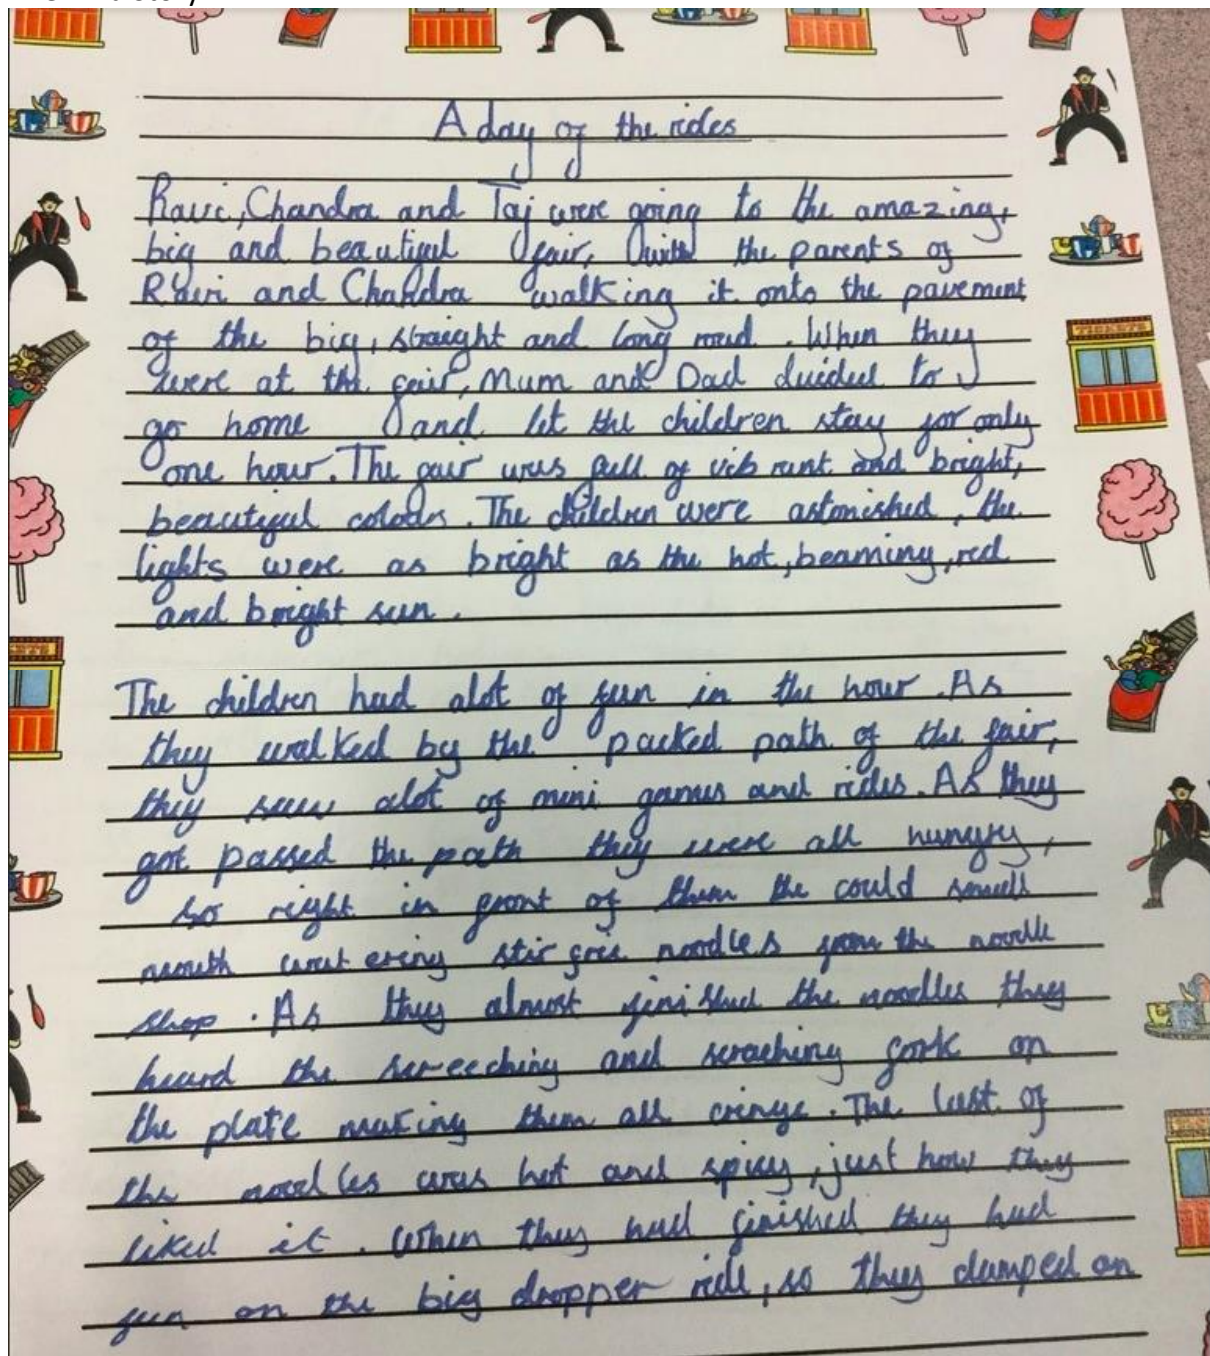 A day of the rides
Ravi, Chandra and Taj were going to the amazing,
big and beautiful fair, with the parents of
Ravi and Chandra walking it onto the pavement
of the big, straight and long road. When they
were at the fair, Mum and Dad decided to
go home and let the children stay for only
one hour. The fair was full of vibrant and bright,
beautiful colours. The children were astonished, the
lights were as bright as the hot, beaming, red
and bright sun.
The children had alot of fun in the hour. As
they walked by the packed path of the fair,
they saw alot of mini games and rides. As they
got passed the path they were all hungry,
so right in front of them the could smell
mouth watering stir free noodles from the noodle
shop. As they almost finished the noodles they
heard the screeching and scraching fork on
the plate making them all cringe. The last of
the noodles was hot and spicy, just how they
liked it. When they had finished they had
fun on the big dropper ride, so they clamped on
TICKETS